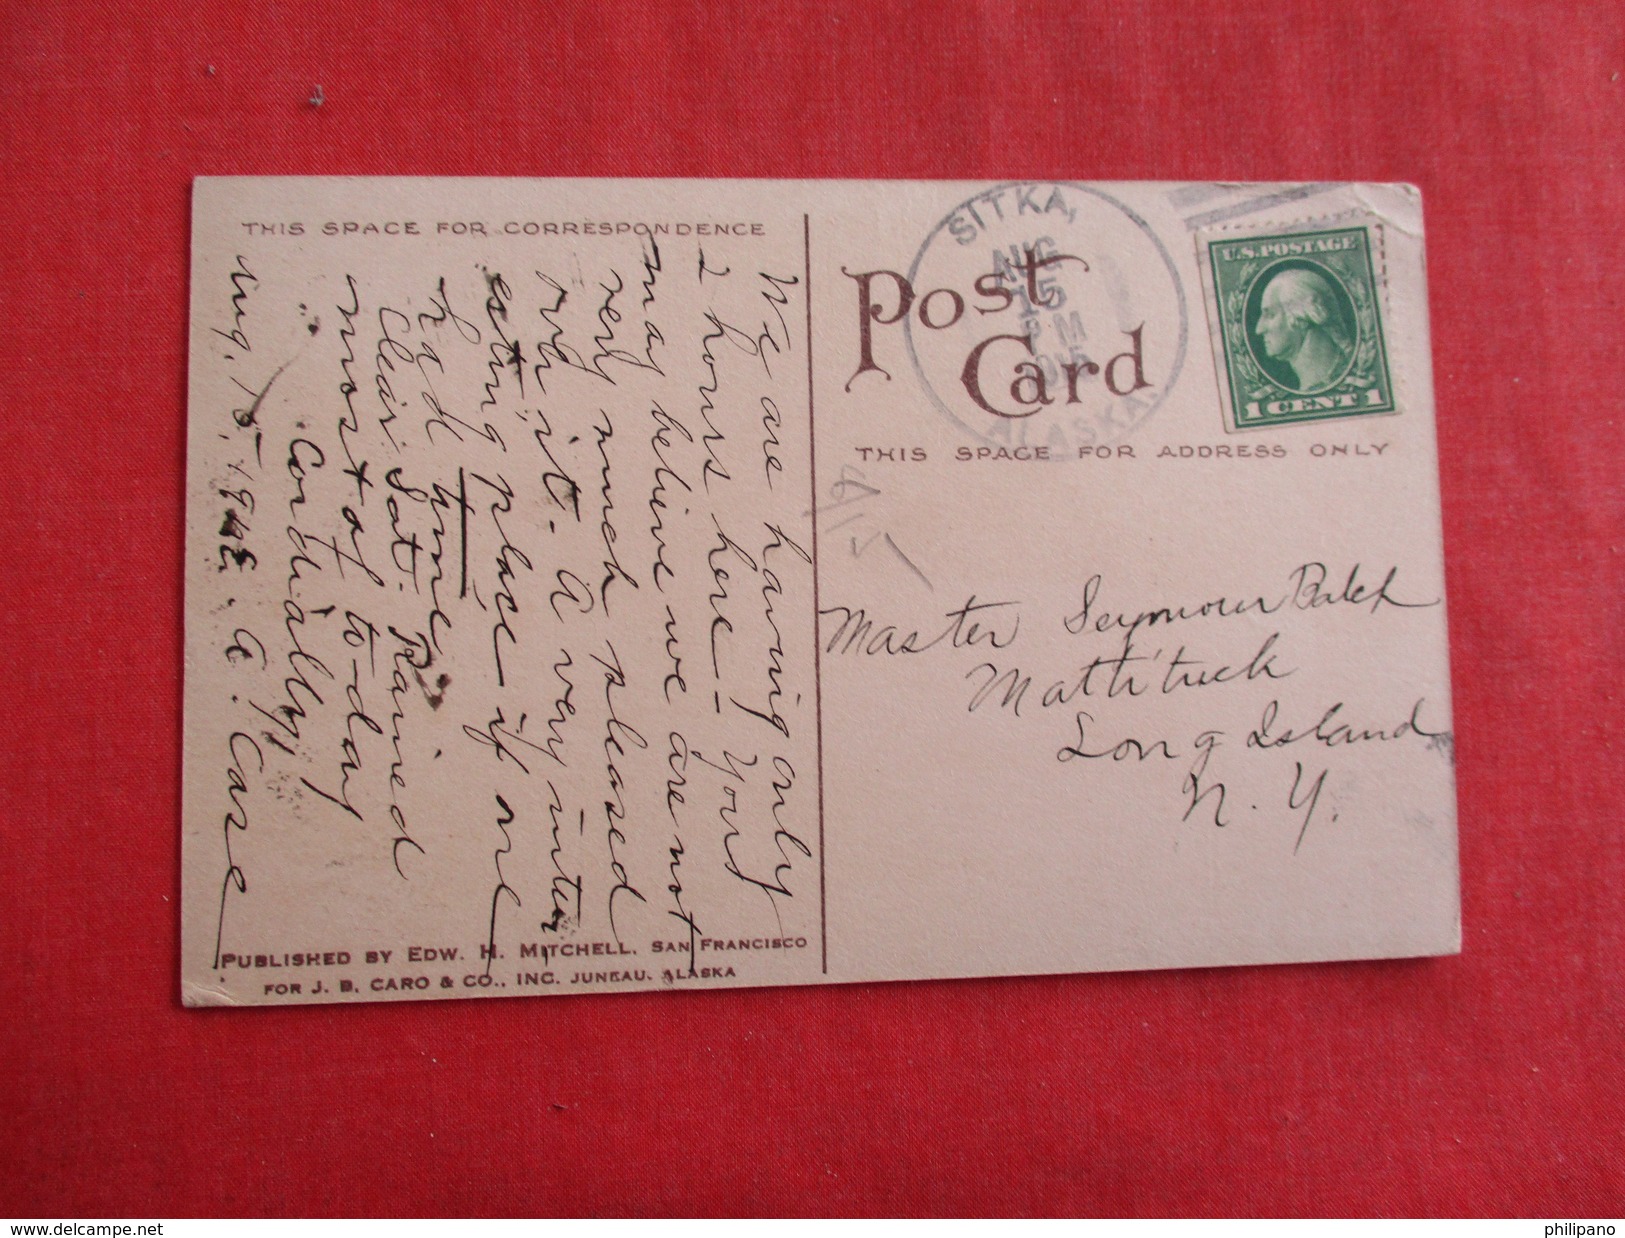 THIS SPACE FOR CORRESPONDENCE
We are having only
2 hours here - You
may believe we are not
very much pleased
over it. A very inter
esting place if one
had time
Clear Sat. Rained
most of to-day
Cordially,
Aug. 15, E. A. Case
PUBLISHED BY EDW. H. MITCHELL, SAN FRANCISCO
FOR J. B. CARO & CO., INC. JUNEAU, ALASKA
SITKA,
AUG
15
PM
ALASKA.
Post
Card
U.S. POSTAGE
1 CENT 1
THIS SPACE FOR ADDRESS ONLY
Master Seymour
Mattituck
Long Island
N. Y.
www.delcampe.net
philipano